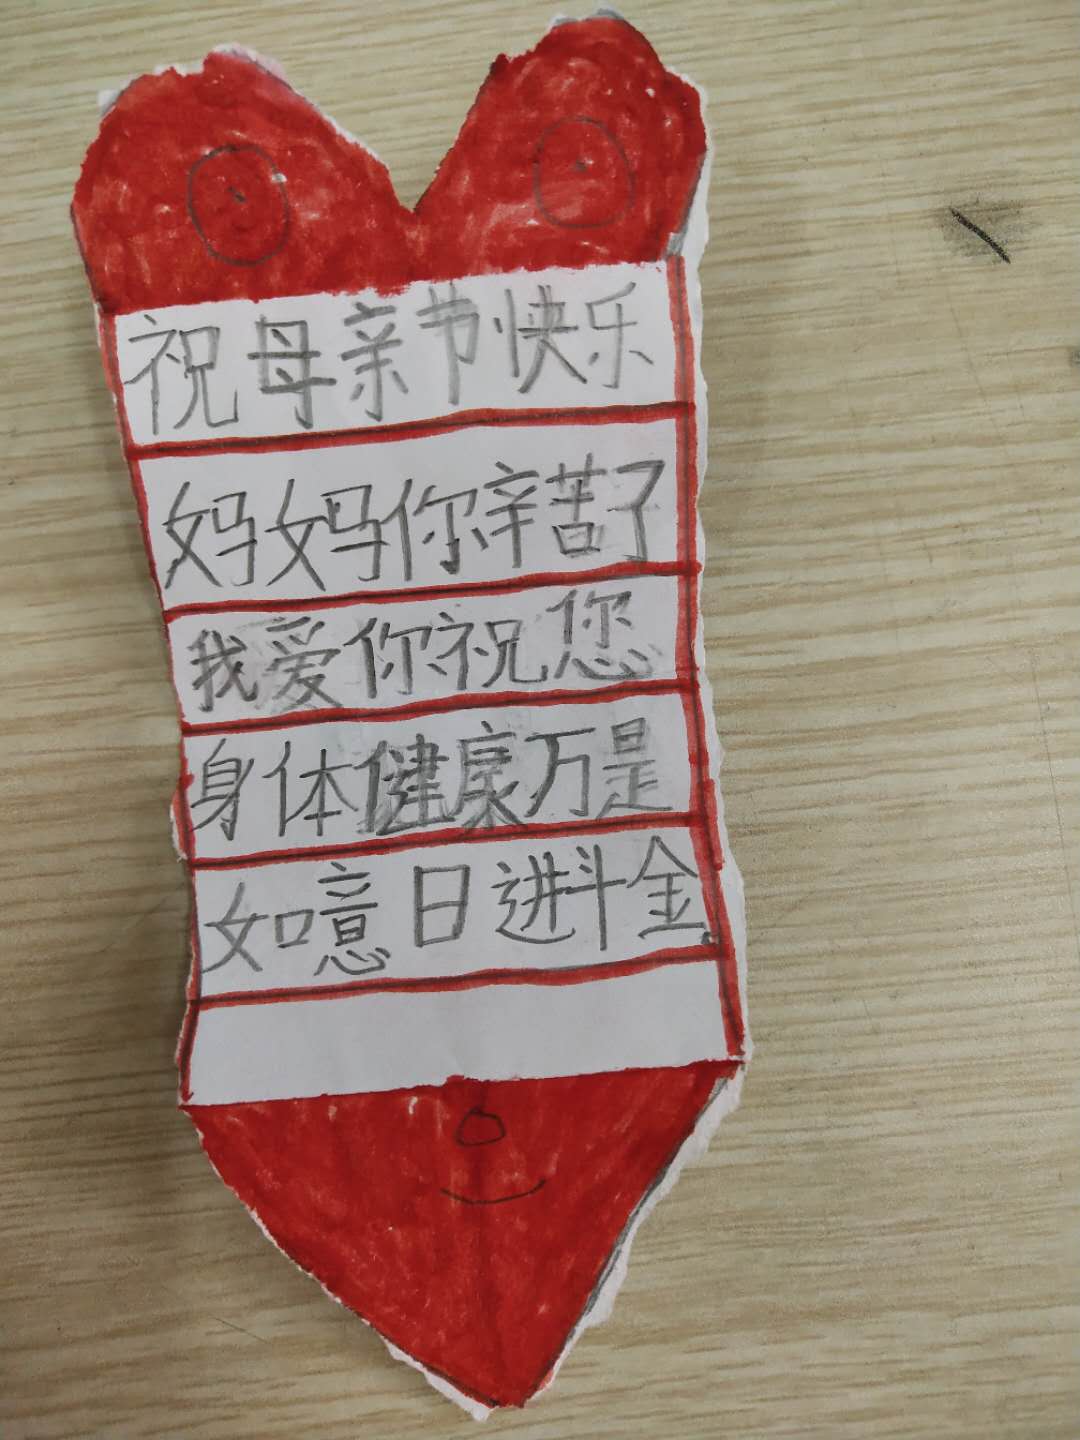 祝母亲节快乐
妈妈你辛苦了
我爱你祝您
身体健康万是
如意日进斗金